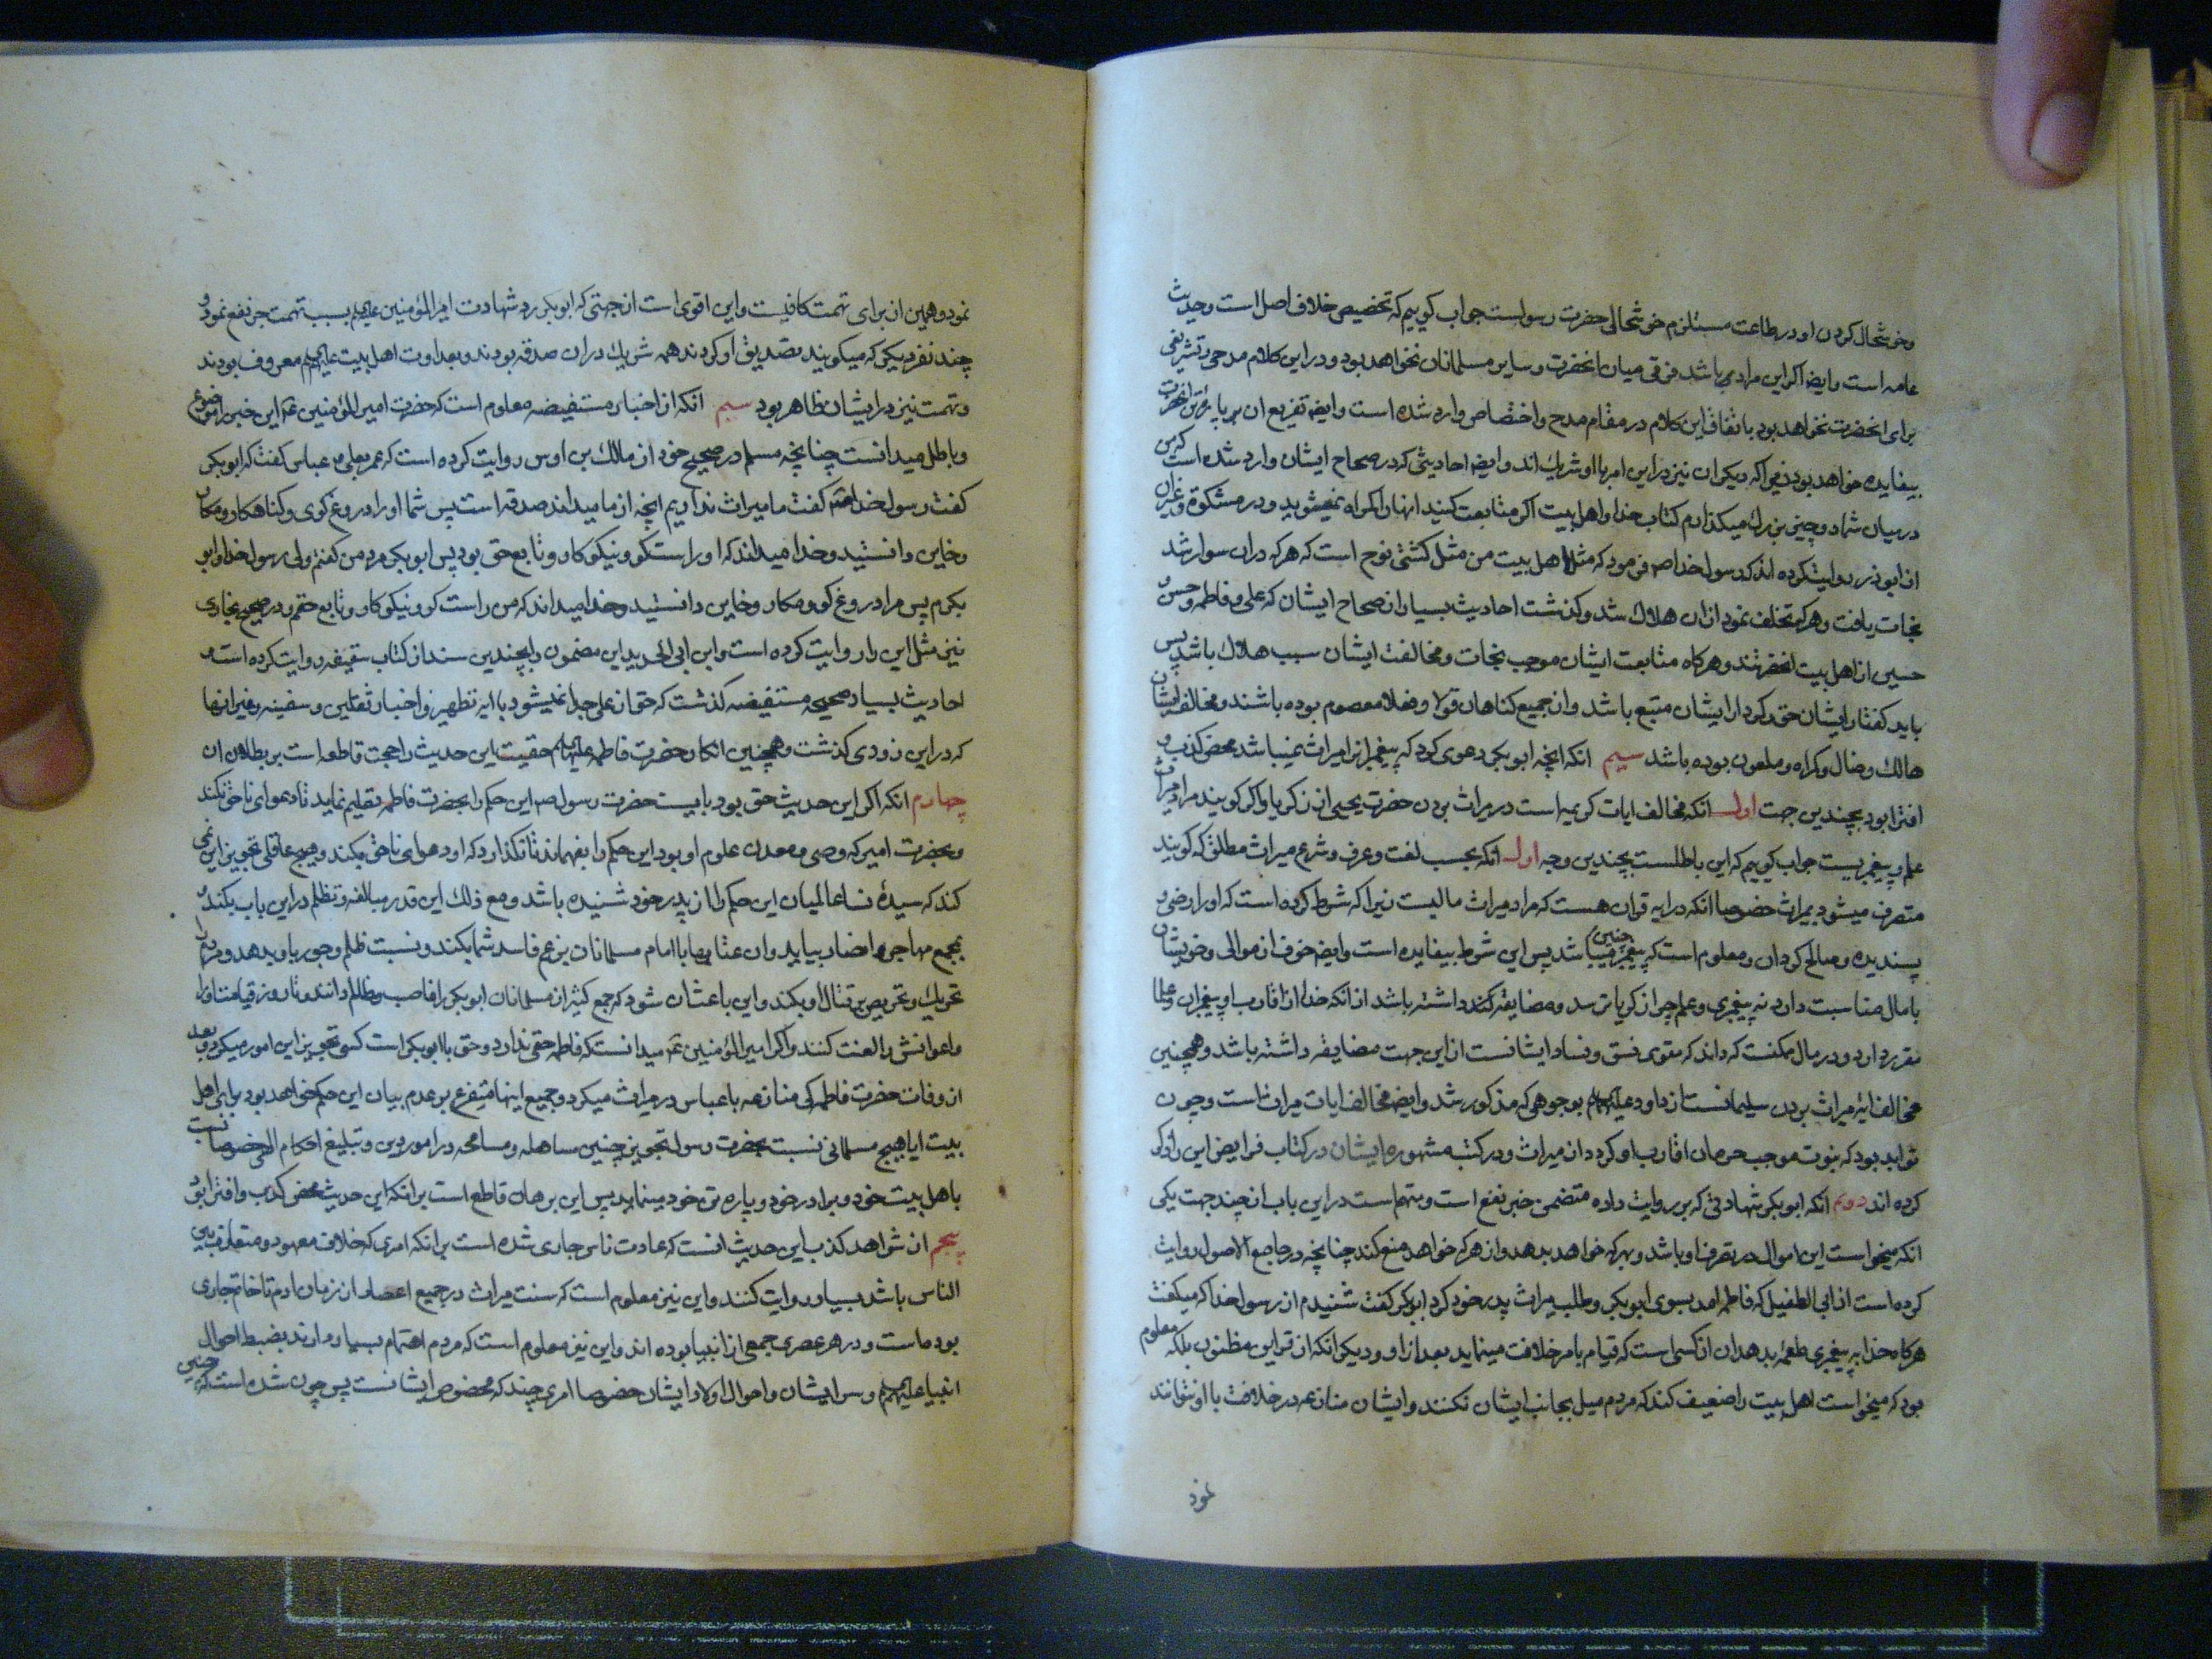 وخوشحال کردن او در طاعت مستلزم خوشحالی حضرت رسولست جواب کوییم که تخصیص خلاف اصل است وحدیث
عامه است وایضا اکر این مراد باشد فرقی میان انحضرت وسایر مسلمانان نخواهد بود ودر این کلام مدحی وتشریفی
برای انحضرت نخواهد بود باتفاق این کلام در مقام مدح واختصاص وارد شده است وایضا تفریع ان بر پاره تن انحضرت
بیفایده خواهد بود زیرا که دیکران نیز در این امر با او شریك اند وایضا احادیثی که در صحاح ایشان وارد شده است که من
در میان شما دو چیز بزرك میکذارم کتاب خدا واهل بیت اکر متابعت کنید انها را کمراه نمیشوید ودر مشکوة وغیر ان
از ابوذر روایت کرده اند که رسولخدا ص فرمود که مثل اهل بیت من مثل کشتی نوح است که هرکه دران سوار شد
نجات یافت وهرکه تخلف نمود ازان هلاك شد وکذشت احادیث بسیار از صحاح ایشان که علی وفاطمه وحسن و
حسین از اهل بیت انحضرتند وهرکاه متابعت ایشان موجب نجات ومخالفت ایشان سبب هلاك باشد پس
باید کفتار ایشان حق وکردار ایشان متبع باشد واز جمیع کناهان قولا وفعلا معصوم بوده باشند ومخالف ایشان
هالك وضال وکمراه وملعون بوده باشد سیم انکه انچه ابوبکر دعوی کرد که پیغمبرانرا میراث نمیباشد محض کذب و
افترا بود بچندین جهت اول انکه مخالف ایات کریمه است در میراث بردن حضرت یحیی از زکریا واکر کویند مراد میراث
علم وپیغمبریست جواب کوییم که این باطلست بچندین وجه اول انکه بحسب لغت وعرف وشرع میراث مطلق که کویند
متصرف میشود بمیراث خصوصا انکه در ایه قران هست که مراد میراث مالیست زیرا که شرط کرده است که او را رضی و
پسندیده وصالح کردان ومعلوم است که پیغمبر چنین میباشد پس این شرط بیفایده است وایضا خوف از موالی وخویشان
با مال مناسبت دارد نه پیغمبری وعلم چرا زکریا ترسد ومضایقه کند داشته باشد از انکه خدا از اقارب او پیغمبران وعلما
مقرر دارد ودر مال ممکنست که داند که مقوی فسق وفساد ایشانست از این جهت مضایقه داشته باشد وهمچنین
مخالف ایه میراث بردن سلیمانست از داود علیهما السلام بوجوهی که مذکور شد وایضا مخالف ایات میراثست وچون
تواند بود که نبوت موجب حرمان اقارب او کردد از میراث ودر کتب مشهوره ایشان در کتاب فرایض این را ذکر
کرده اند دویم انکه ابوبکر شهادتی که بر روایت داده متضمن خبر نفع است ومتهم است در این باب از چند جهت یکی
انکه میخواست این اموال در تصرف او باشد وبهر که خواهد بدهد واز هر که خواهد منع کند چنانچه در جامع الاصول روایت
کرده است از ابی الطفیل که فاطمه امد بسوی ابوبکر وطلب میراث پدر خود کرد ابوبکر کفت شنیدم از رسول خدا که میکفت
هرکاه خدا به پیغمبری طعمه بدهد ان از کسی است که قیام بامر خلافت مینماید بعد از او ودیکر انکه از قراین مظنون بلکه معلوم
بود که میخواست اهل بیت را ضعیف کند که مردم میل بجانب ایشان نکنند وایشان منازعه در خلافت با او نتوانند
نمود
نمود وهمین از برای تهمت کافیست واین اقوی است از جهتی که ابوبکر رد شهادت امیرالمؤمنین علیه السلام بسبب تهمت جر نفع نمود و
چند نفر دیکر که میکویند تصدیق او کردند همه شریك در ان صدقه بودند وبعداوت اهل بیت علیهم السلام معروف بودند
وتهمت نیز در ایشان ظاهر بود سیم انکه از اخبار مستفیضه معلوم است که حضرت امیرالمؤمنین ع این خبر را موضوع
وباطل میدانست چنانچه مسلم در صحیح خود از مالك بن اوس روایت کرده است که عمر بعلی وعباس کفت که ابوبکر
کفت رسول خدا ص کفت ما میراث نداریم انچه از ما میماند صدقه است پس شما او را دروغ کوی وکناهکار ومکار
وخاین دانستید وخدا میداند که او راستکو ونیکو کار وتابع حق بود پس ابوبکر مرد من کفتم ولی رسول خدا وابو
بکرم پس مرا دروغ کو ومکار وخاین دانستید وخدا میداند که من راست کو ونیکو کار وتابع حقم ودر صحیح بخاری
نیز مثل این را روایت کرده است وابن ابی الحدید این مضمون را بچندین سند از کتاب سقیفه روایت کرده است و
احادیث بسیار صحیحه مستفیضه کذشت که حق از علی جدا نمیشود با ایه تطهیر واخبار ثقلین وسفینه وغیر انها
که در این زودی کذشت وهمچنین انکار حضرت فاطمه علیها السلام حقیت این حدیث را حجت قاطعه است بر بطلان ان
چهارم انکه اکر این حدیث حق بود بایست حضرت رسول ص این حکم را بحضرت فاطمه تعلیم نماید تا دعوای ناحق نکند
وبحضرت امیر که وصی ومعدن علوم او بود این حکم را بفهماند تا نکذارد که او دعوای ناحق بکند وهیچ عاقلی تجویز این نمی
کند که سیدۀ نساء عالمیان این حکم را از پدر خود شنیده باشد ومع ذلك این قدر مبالغه وتظلم در این باب بکند و
بمجمع مهاجر وانصار بیاید وان عتابها با امام مسلمانان بزعم فاسد شما بکند ونسبت ظلم وجور باو بدهد ومردم را
تحریك وتحریص بر قتال او بکند واین باعث ان شود که جمع کثیر از مسلمانان ابوبکر را غاصب وظالم دانند وتا روز قیامت او را
واعوانش را لعنت کنند واکر امیرالمؤمنین ع میدانست که فاطمه حقی ندارد وحق با ابوبکر است کی تجویز این امور میکرد وبعد
از وفات حضرت فاطمه کی منازعه با عباس در میراث میکرد وجمیع اینها متفرع بر عدم بیان این حکم خواهد بود برای اهل
بیت ایا هیچ مسلمانی نسبت بحضرت رسول تجویز چنین مساهله ومسامحه در امور دین وتبلیغ احکام الهی خصوصا نسبت
باهل بیت خود وبرادر خود وپاره تن خود مینماید پس این برهان قاطع است بر انکه این حدیث محض کذب وافترا بود
پنجم از شواهد کذب این حدیث انست که عادت ناس جاری شده است بر انکه امری که خلاف معهود ومتعارف بین
الناس باشد بسیار روایت کنند واین نیز معلوم است که سنت میراث در جمیع اعصار از زمان ادم تا خاتم جاری
بوده است ودر هر عصری جمعی از انبیا بوده اند واین نیز معلوم است که مردم اهتمام بسیار دارند بضبط احوال
انبیا علیهم السلام وسیر ایشان واحوال اولاد ایشان خصوصا امری چند که مخصوص ایشانست پس چون شده است که چنین